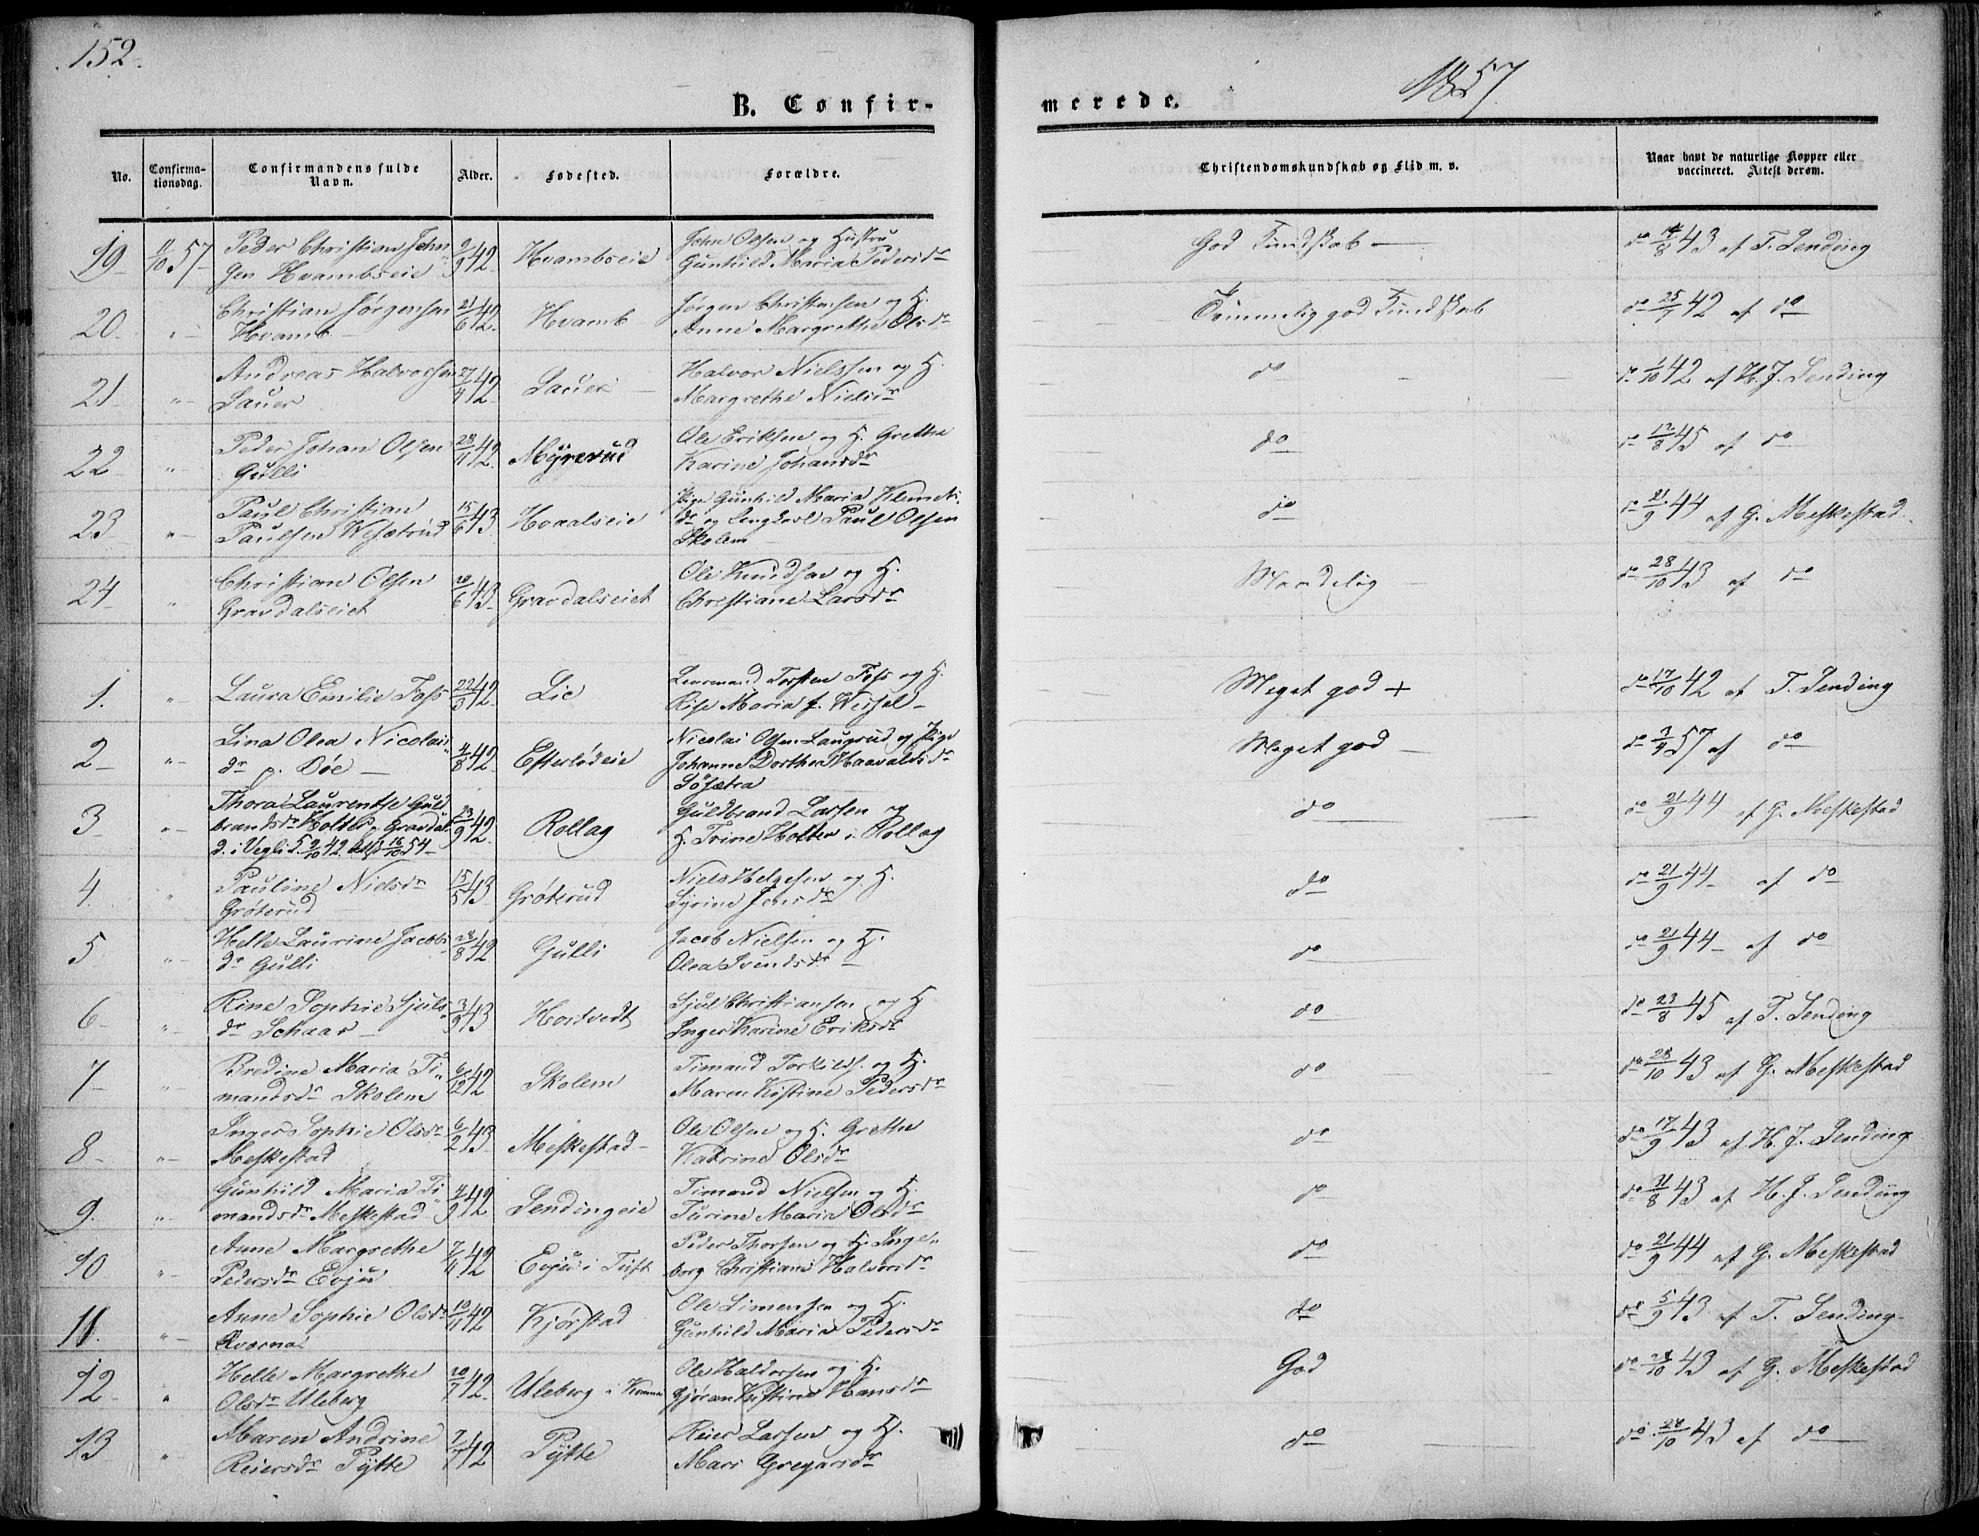 152.
1857.
B. Confir-
merede.
No.
Confirma-
tionsdag.
Confirmandens fulde
Navn.
Alder.
Fødested.
Forældre.
Christendomskundskab og Flid m. v.
Naar havt de naturlige Kopper eller
vaccineret. Attest derom.
19 11/10 57 Peder Christian John
sen Hvambseie 2/9 42 Hvambseie John Olsen og Hustru
Gunhild Maria Pedersdr God Kundskab do 14/8 43 af T. Sending
20. " Christian Jørgensen
Hvamb 21/6 42. Hvamb Jørgen Christensen og H.
Anne Margrethe Olsdr Temmelig god Kundskab do 25/7 42 af do
21 " Andreas Halvorsen
Sauer 42 Sauer Halvor Nielssen og H.
Margrethe Nielsdr do do 1/10 42 af H. J. Sending
22 " Peder Johan Olsen
Gulli 42. Myrerud Ole Eriksen og H. Grethe
Karine Johansdr do do 17/8 45 af do
23 " Paul Christian
Paulsen 15/6 43 Hvaalseie Pige Gunhild Maria Klemets
dr og Ungkarl Paul Olsen
Skolem do do 21/9 44 af G. Meskestad
24 " Christian Olsen
Gravdalseiet 20/6 43 Gravdalseiet Ole Knudsen og H.
Christiane Larsdr Maadelig do 28/10 43 af do
1. " Laura Emilie Foss 42. Lie Lensmand Torsten Foss og H.
Rise Maria f. Wessel Meget god + do 17/10 42 af T. Sending
2 " Lina Olea Nicolai
dr p. Bøe 4/8 42. Efterlødeie Nicolai Olsen Laugrud og Pige
Johanne Dorthea Haavaldsdr
Søsætra Meget god do 57 af do
3 " Thora Laurentse Guld
brandsdr Holter p. Gravdal
d. i Vegli 5. 2/10 42. 16/10 54 23/9 42. Rollag Guldbrand Larsen og
H. Trine Holter i Rollag do do 21/9 44 af G. Meskestad
4. " Pauline Nielsdr
Grøterud 15/5 43 Grøterud Niels Helgesen og H.
Syrine Jensdr do do 21/9 44 af do
5 " Helle Laurine Jacobs
dr Gulli 28/8 42 Gulli Jacob Nielsen og H.
Olea Svendsdr do do 21/9 44 af do
6 " Rine Sophie Sjuls
dr Schaar 43 Hostvedt Sjul Christiansen og H
Inger Karine Eriksdr do do 23/8 45 af T. Sending
7 " Bredine Maria Ti
mandsdr Skolem 6/12 42 Skolem Timand Torkilds. og H.
Maren Kistine Pedersdr do do 28/10 43 af G. Meskestad
8 " Inger Sophie Olsdr
Meskestad 6/2 43 Meskestad Ole Olsen og H. Grethe
Katrine Olsdr do do 17/9 43 af H. J. Sending
9. " Gunhild Maria Ti
mandsdr Meskestad 4/9 42 Sendingeie Timand Nielsen og H.
Turine Maria Olsdr do do 31/8 43 af H. J. Sending
10 " Anne Margrethe
Pedersdr Evju 7/11 42 Evju i Tuft Peder Thorsen og H. Inge
borg Christians Halvorsdr do do 21/9 44 af G. Meskestad
11. " Anne Sophie Olsdr
Kvarna 10/11 42 Kjørstad Ole Simensen og H.
Gunhild Maria Pedersdr do do 5/9 43 af T. Sending
12 " Helle Margrethe
Olsdr Uleberg 20/7 42. Uleberg i Komna Ole Haldorsen og H.
Gjøran Kistine Hansdr God do 28/10 43 af G. Meskestad
13 " Maren Andrine
Reiersdr Pytte 7/7 42 Pytte Reier Larsen og H.
Mari Gregarsdr do do 28/10 43 af do